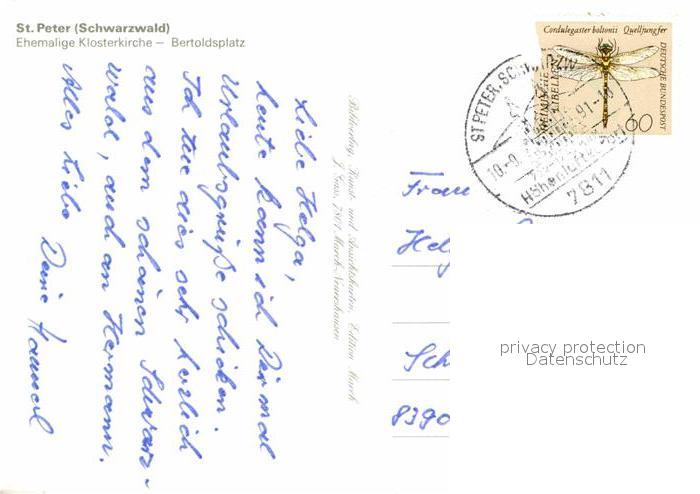 St. Peter (Schwarzwald)
Ehemalige Klosterkirche – Bertoldsplatz
Liebe Helga,
heute kann ich Dir mal
Urlaubsgrüße schicken.
Ich tue dies sehr herzlich
aus dem schönen Schwarz-
wald, auch an Hermann.
Alles Liebe
Deine
Bildverlag, Kunst- und Ansichtskarten, Edition March
J. Gass, 7801 March-Neuershausen
Cordulegaster boltonii Quelljungfer
DEUTSCHE BUNDESPOST
LIBELLEN
60
ST PETER, SCHWARZW
91-18
Höhenluftkurort
7811
Frau
Hel
Sch
8390
privacy protection
Datenschutz